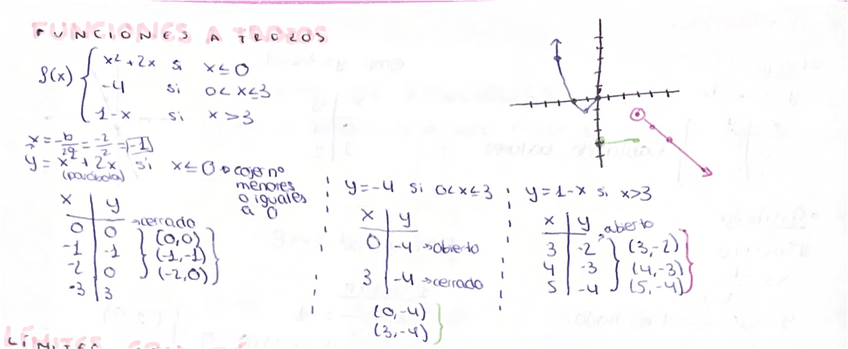 FUNCIONES A TROZOS
f(x) { x² + 2x si x ≤ 0
-4 si 0 < x ≤ 3
1 - x si x > 3
x = -b/2a = -2/2 = -1
y = x² + 2x si x ≤ 0 → coger nº menores o iguales a 0
(parábola)
x | y
0 | 0 → cerrado (0,0)
-1 | -1 (-1,-1)
-2 | 0 (-2,0)
-3 | 3
y = -4 si 0 < x ≤ 3
x | y
0 | -4 → abierto
3 | -4 → cerrado
(0,-4)
(3,-4)
y = 1 - x si x > 3
x | y
3 | -2 → abierto (3,-2)
4 | -3 (4,-3)
5 | -4 (5,-4)
LÍMITES